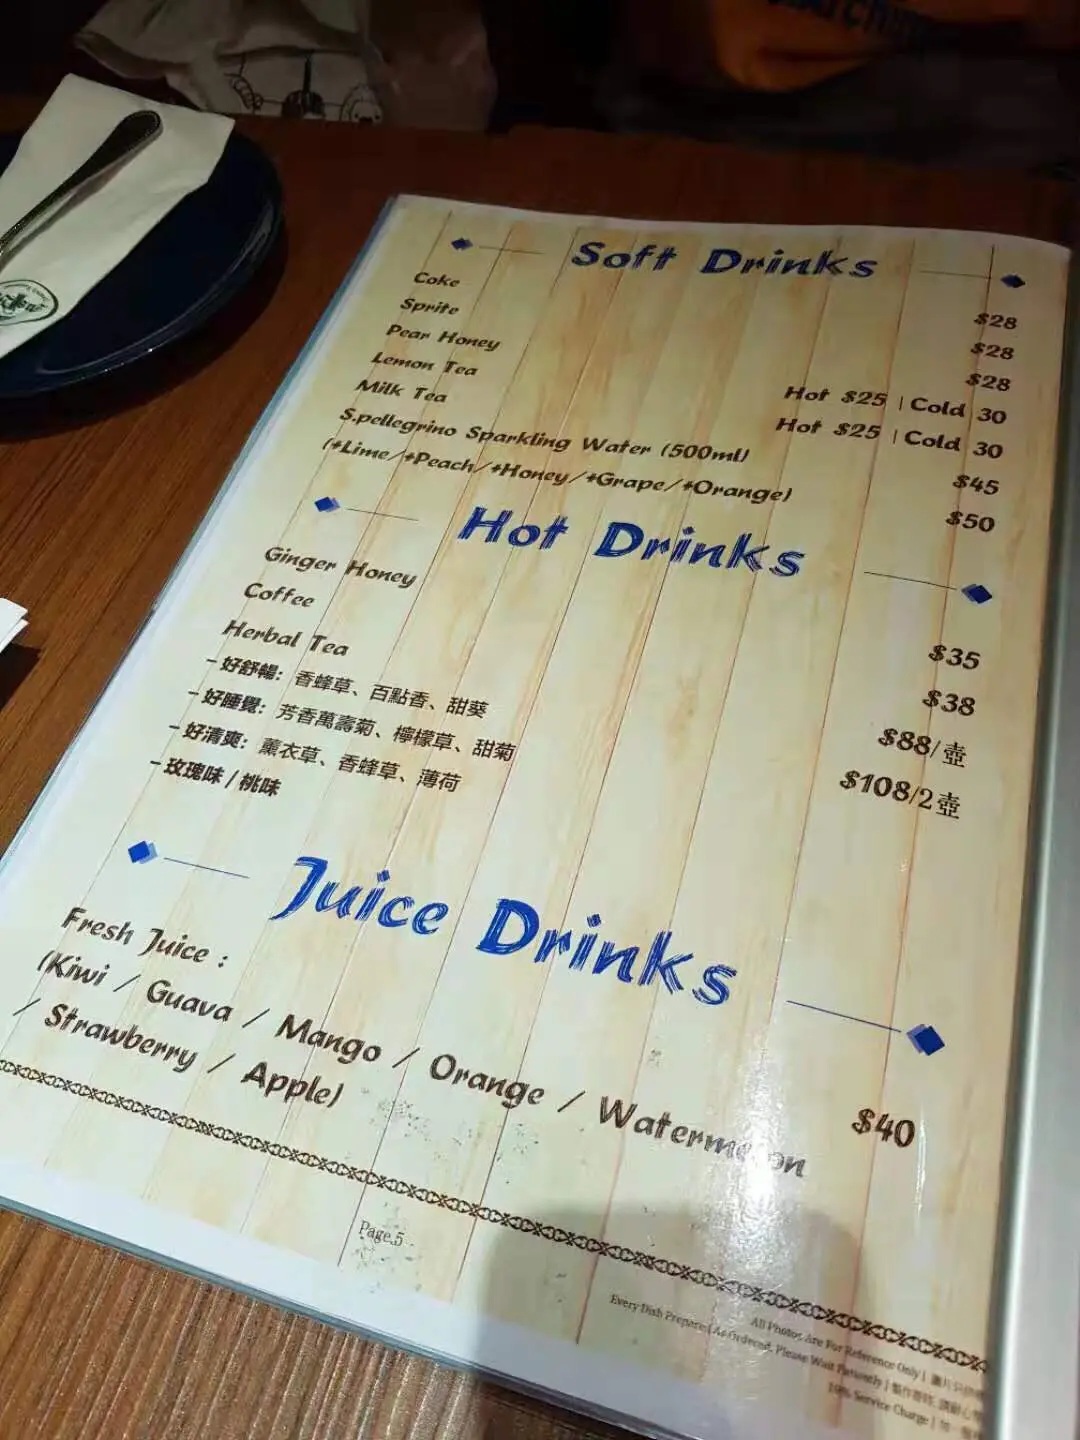 Soft Drinks
Coke $28
Sprite $28
Pear Honey $28
Lemon Tea Hot $25 | Cold 30
Milk Tea Hot $25 | Cold 30
S.pellegrino Sparkling Water (500ml) $45
(+Lime/+Peach/+Honey/+Grape/+Orange) $50
Hot Drinks
Ginger Honey $35
Coffee $38
Herbal Tea $88/壺
$108/2壺
-好舒暢：香蜂草、百點香、甜葵
-好睡覺：芳香萬壽菊、檸檬草、甜菊
-好清爽：薰衣草、香蜂草、薄荷
-玫瑰味 / 桃味
Juice Drinks
Fresh Juice : $40
(Kiwi / Guava / Mango / Orange / Watermelon
/ Strawberry / Apple)
Page.5
All Photos Are For Reference Only |
Every Dish Prepared As Ordered, Please Wait Patiently |
10% Service Charge |